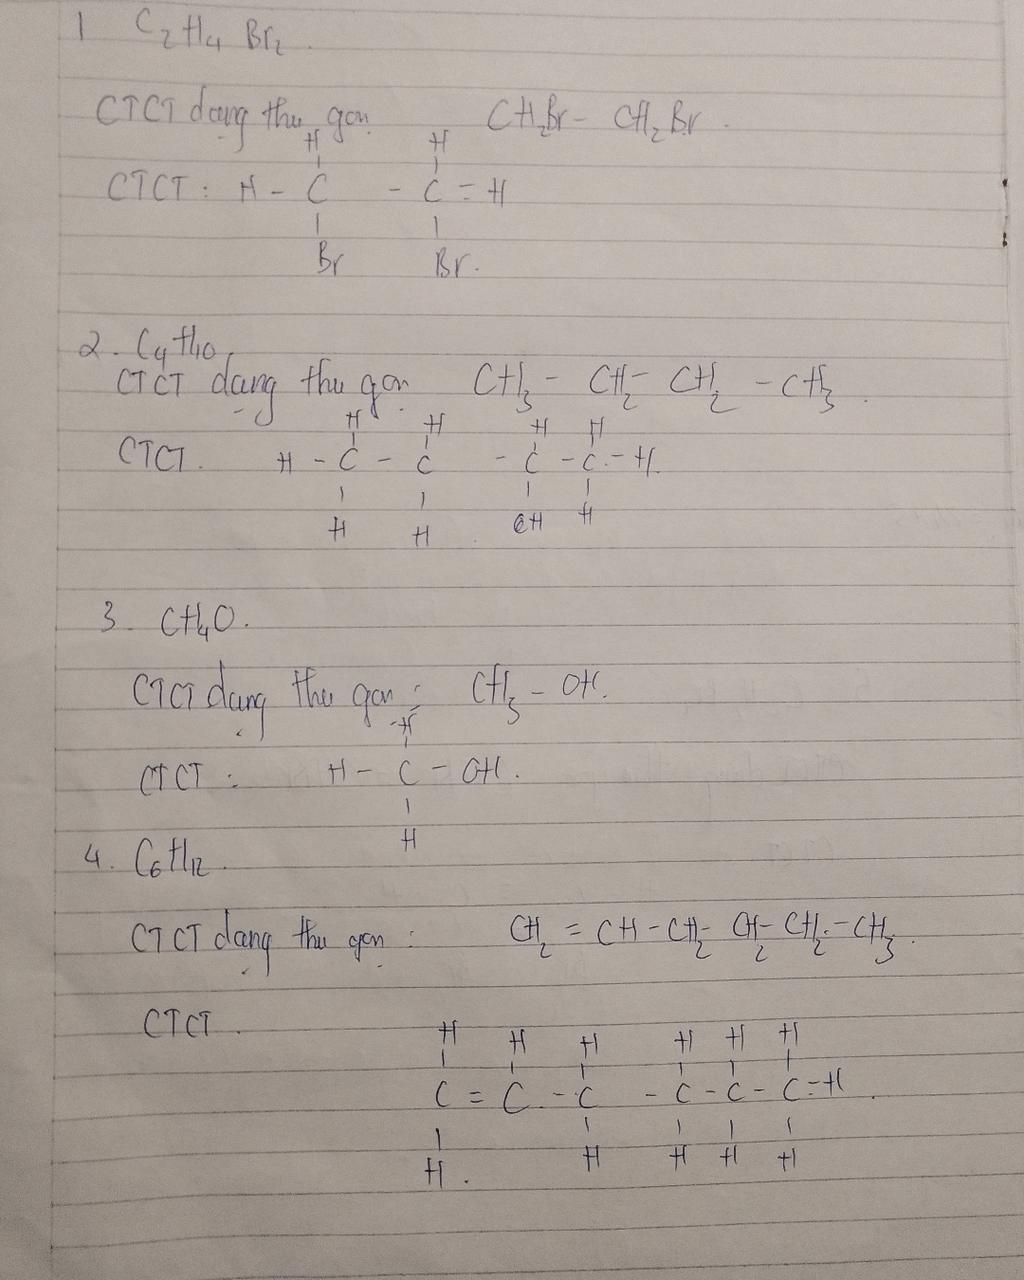 1 C₂H₄ Br₂.
CTCT dạng thu gọn CH₂Br - CH₂Br.
H H
CTCT : H - C - C = H
Br Br.
2. C₄H₁₀
CTCT dạng thu gọn CH₃ - CH₂ - CH₂ - CH₃.
H H H H
CTCT. H - C - C - C - C - H.
H H H H
3. CH₄O.
CTCT dạng thu gọn : CH₃ - OH.
H
CTCT : H - C - OH.
H
4. C₆H₁₂.
CTCT dạng thu gọn : CH₂ = CH - CH₂ - CH₂ - CH₂ - CH₃.
CTCT.
H H H H H H
C = C - C - C - C - C - H
H. H H H H